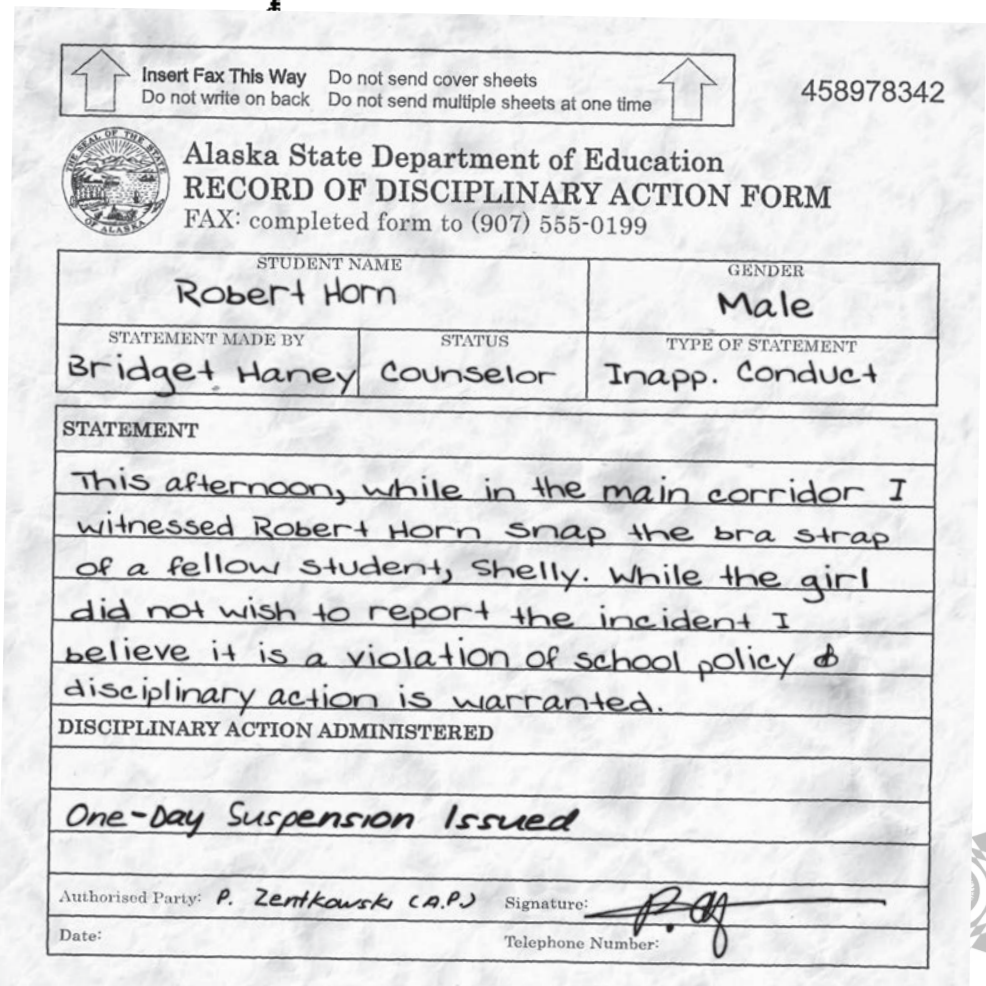 Insert Fax This Way Do not send cover sheets
Do not write on back Do not send multiple sheets at one time
458978342
THE SEAL OF THE STATE
OF ALASKA
Alaska State Department of Education
RECORD OF DISCIPLINARY ACTION FORM
FAX: completed form to (907) 555-0199
STUDENT NAME
Robert Horn
GENDER
Male
STATEMENT MADE BY
Bridget Haney
STATUS
Counselor
TYPE OF STATEMENT
Inapp. Conduct
STATEMENT
This afternoon, while in the main corridor I
witnessed Robert Horn snap the bra strap
of a fellow student, Shelly. While the girl
did not wish to report the incident I
believe it is a violation of school policy &
disciplinary action is warranted.
DISCIPLINARY ACTION ADMINISTERED
One-Day Suspension Issued
Authorised Party: P. Zentkowski (A.P.) Signature:
Date:
Telephone Number: